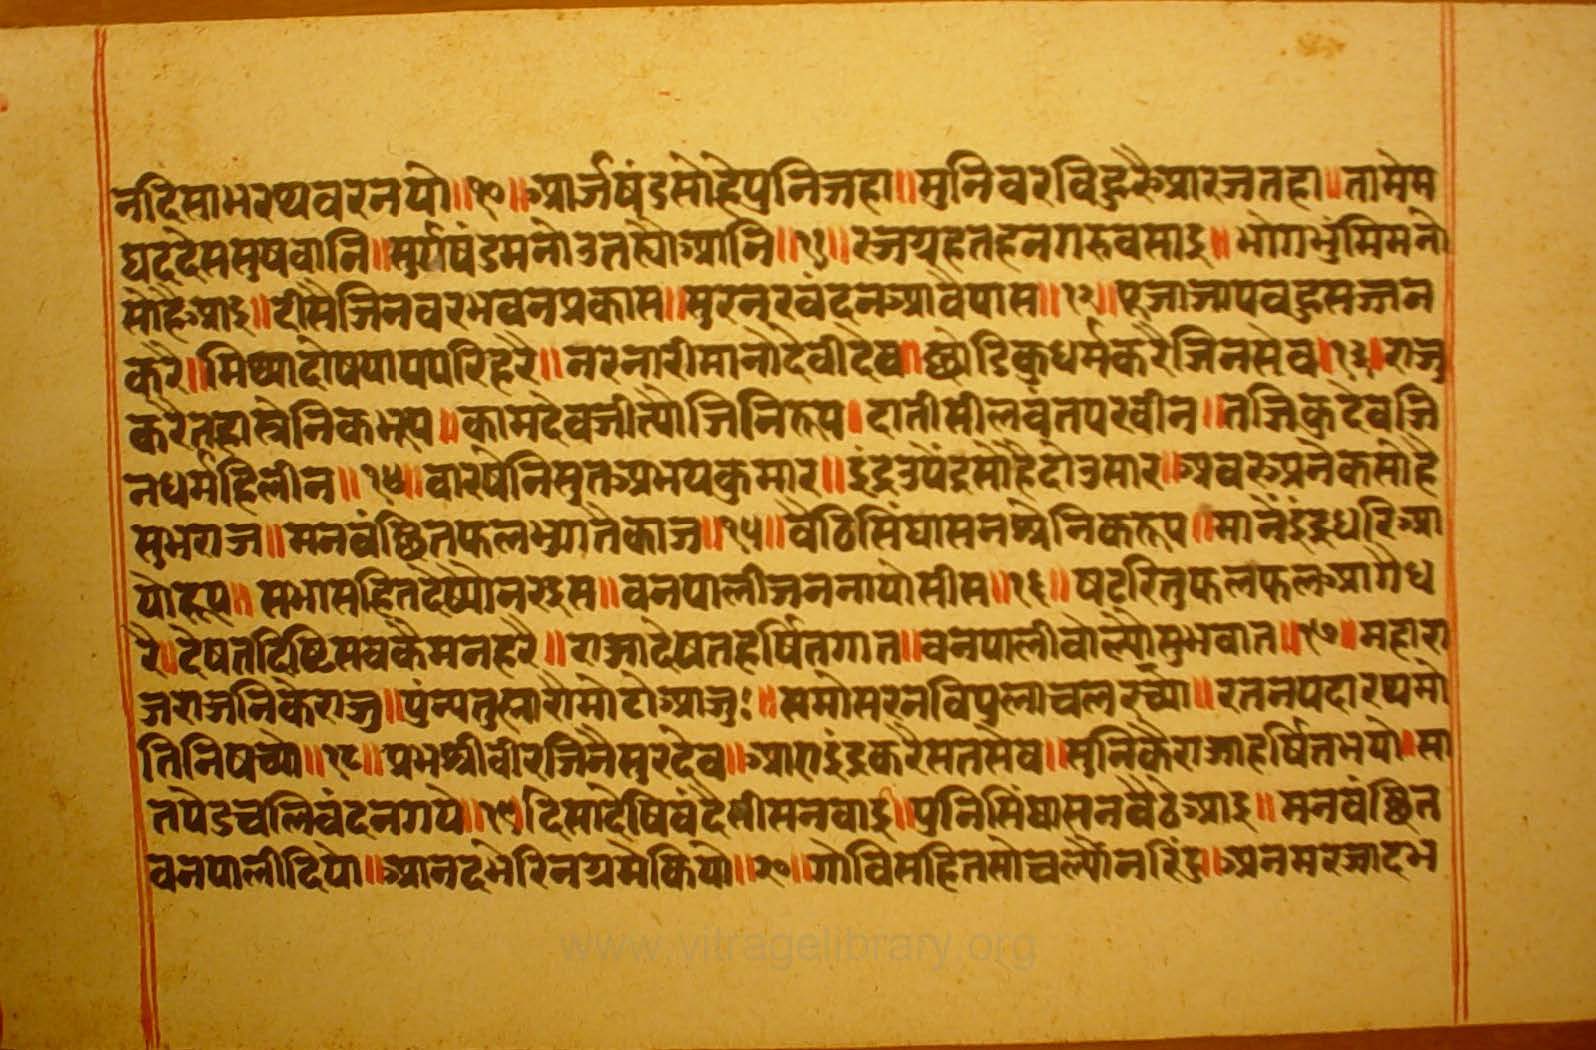 नदिसाभरथवरनयो॥१०॥आर्जषंडसोहेपुनिजहा॥मुनिवरविहुरैआरजतहा॥तामेम
घददेससुषवानि॥सुर्गषंडमनोउतस्यौआनि॥११॥रजग्रहतहनगरुवसाइ॥भोगभुंमिमनो
सोहैआइ॥दीसैजिनवरभवनप्रकास॥सुरनरवंदनआवैपास॥१२॥पूजाजापवहुसज्जन
करै॥मिथ्यादोषपापपरिहरै॥नरनारीमानोदेवीदेव॥छाडिकुधर्मकरैजिनसेव॥१३॥राजु
करैतहास्त्रेनिकभूप॥कामदेवजीत्यौजिनिरूप॥दातीसीलवंतपरवीन॥तजिकुदेवजि
नधर्महिलीन॥१४॥वारषेनिसुतअभयकुमार॥इंद्रउपेंद्रसोहैदोउसार॥अवरुअनेकसोहै
सुभराज॥मनवंछितफलभुगतैकाज॥१५॥वैठिसिंघासनश्रेनिकरूप॥मानैंइंद्रुधरिआ
योरूप॥सभासहितदेष्योनरइस॥वनपालीजननायोसीस॥१६॥षटरितुफलफूलआगैध
रै॥देषतदिष्टिसवकैमनहरै॥राजादेषतहर्षितगात॥वनपालीवोल्यौसुभवात॥१७॥महारा
जराजनिकेराजु॥पुंन्यतुह्मारौमोटोआजु:॥समोसरनविपुलाचलरच्यौ॥रतनपदारथमो
तिनिषच्यौ॥१८॥प्रभश्रीवीरजिनैसुरदेव॥आराइंद्रकरैसतसेव॥सुनिकैराजाहर्षितभयो॥सा
तपेडचलिवंदनगये॥१९॥दिसादेषिवंदैसीसनवाइ॥पुनिसिंघासनवैठेआइ॥मनवंछित
वनपालीदियो॥आनदभेरिनग्रमेकियो॥२०॥गोविसहितसोचल्यौनरिंदु॥अनमरजादभ
www.vitragelibrary.org